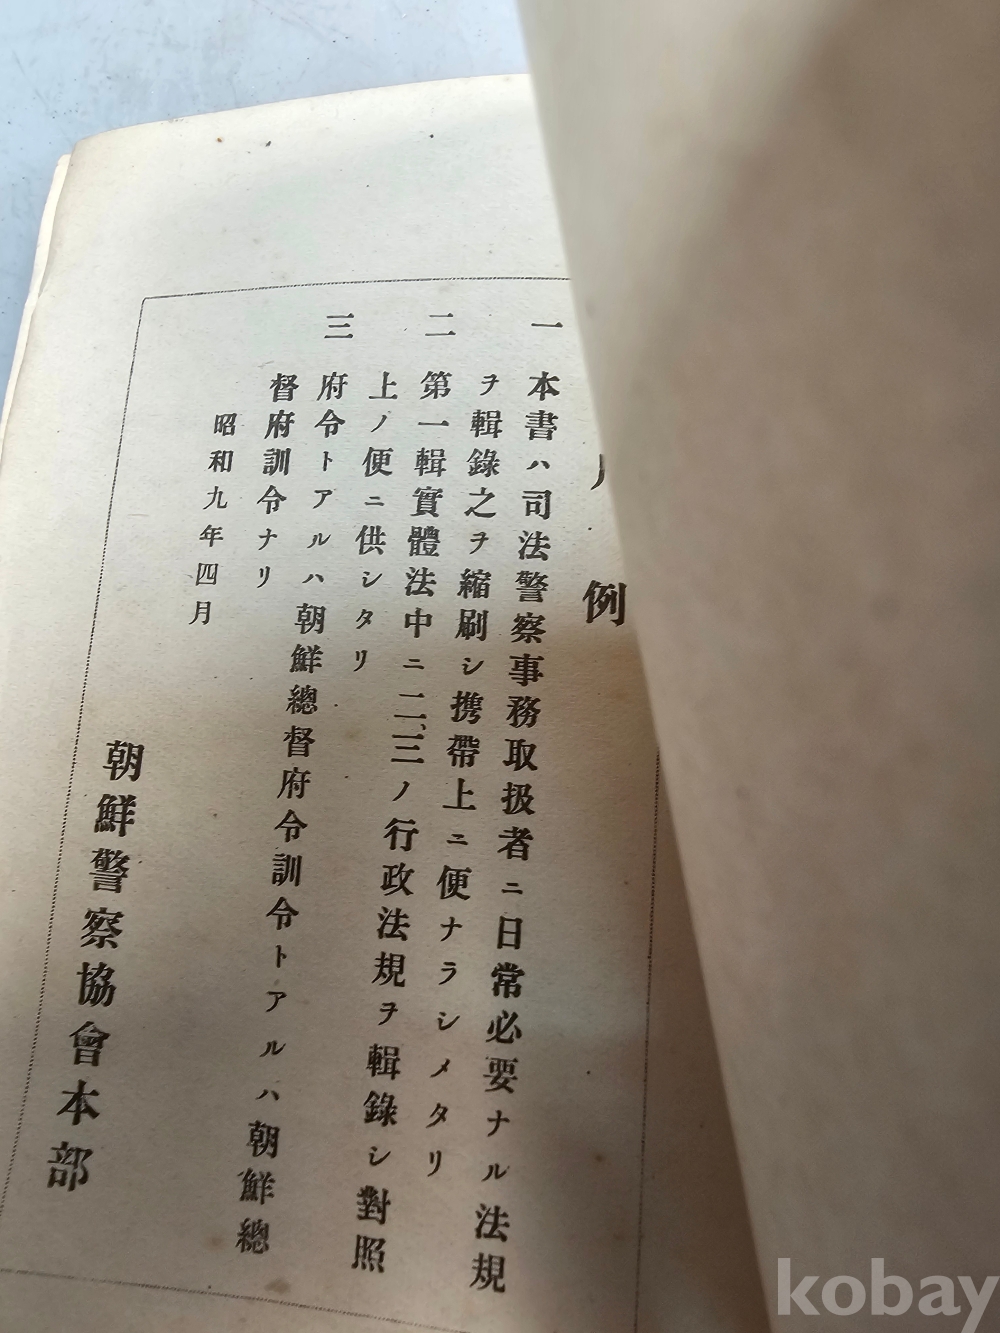 例
一 本書ハ司法警察事務取扱者ニ日常必要ナル法規
ヲ輯錄之ヲ縮刷シ携帶上ニ便ナラシメタリ
二 第一輯實體法中ニ二、三ノ行政法規ヲ輯錄シ對照
上ノ便ニ供シタリ
三 府令トアルハ朝鮮總督府令訓令トアルハ朝鮮總
督府訓令ナリ
昭和九年四月
朝鮮警察協會本部
kobay